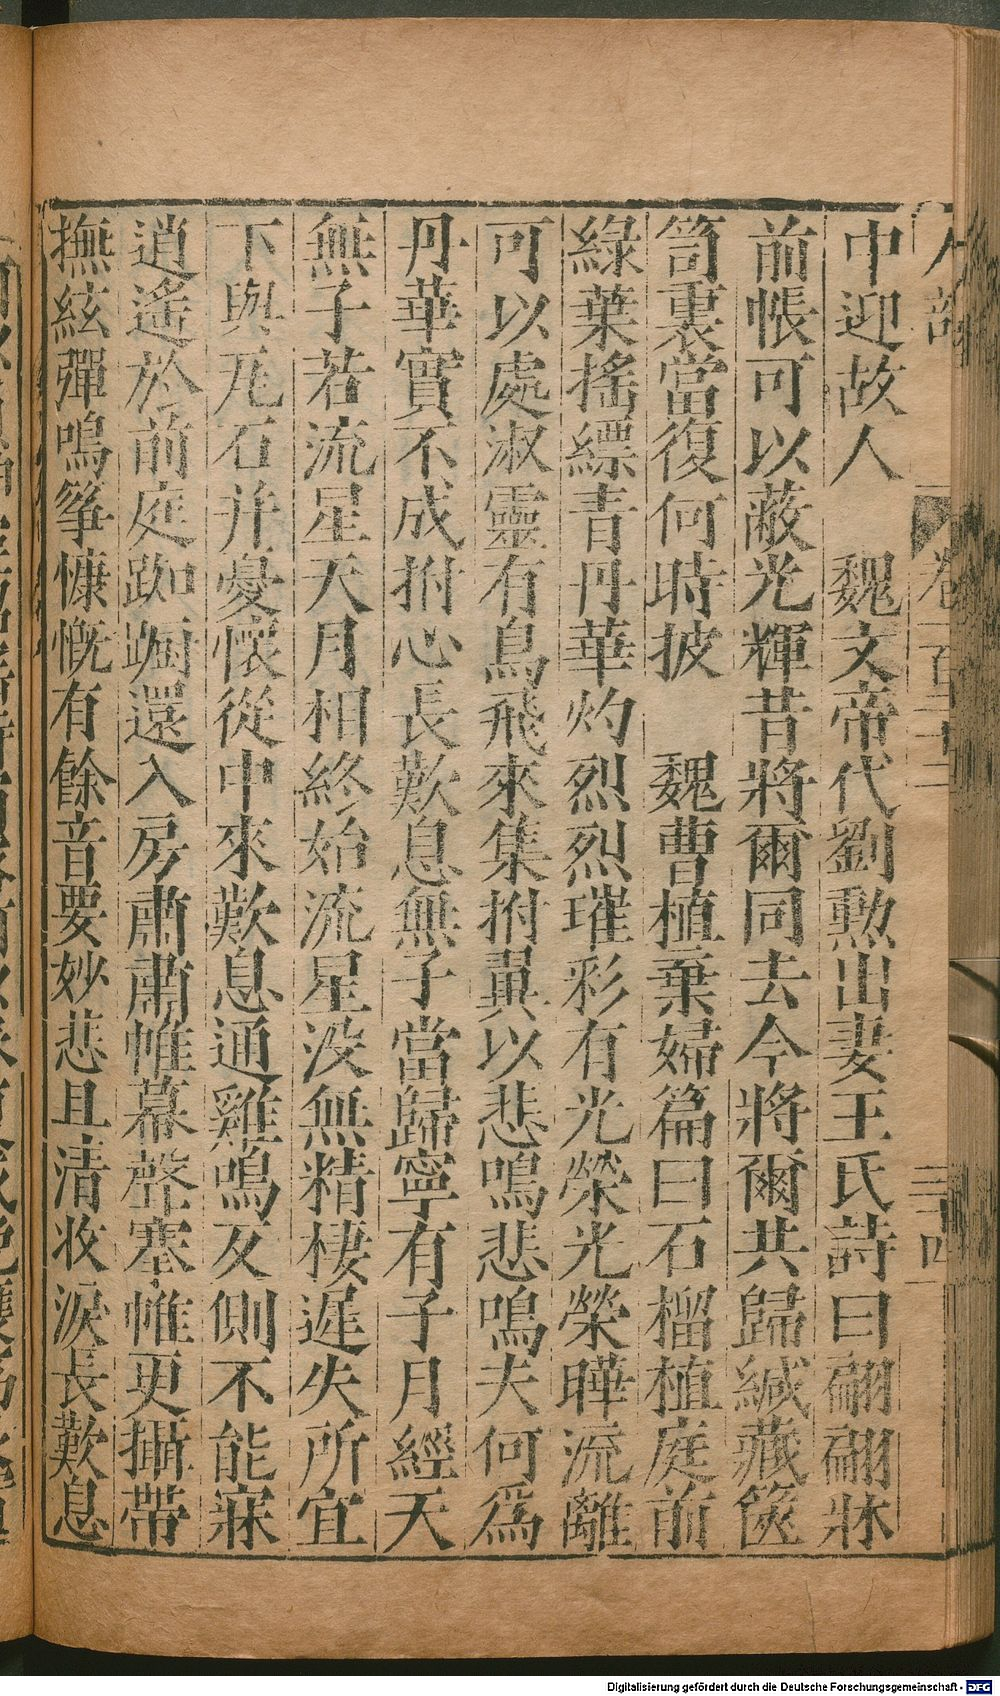 中迎故人　魏文帝代劉勲出妻王氏詩曰翩翩牀
前帳可以蔽光輝昔將爾同去今將爾共歸緘藏篋
笥裏當復何時披　魏曹植棄婦篇曰石榴植庭前
綠葉搖縹青丹華灼烈烈璀彩有光榮光榮曄流離
可以處淑靈有鳥飛來集拊翼以悲鳴悲鳴夫何爲
丹華實不成拊心長歎息無子當歸寧有子月經天
無子若流星天月相終始流星没無精棲遲失所宜
下與瓦石并憂懷從中來歎息通雞鳴反側不能寐
逍遙於前庭踟蹰還入房肅肅帷幕聲搴帷更攝帶
撫絃彈鳴箏慷慨有餘音要妙悲且清收淚長歎息
人部
卷
三十四
Digitalisierung gefördert durch die Deutsche Forschungsgemeinschaft - DFG